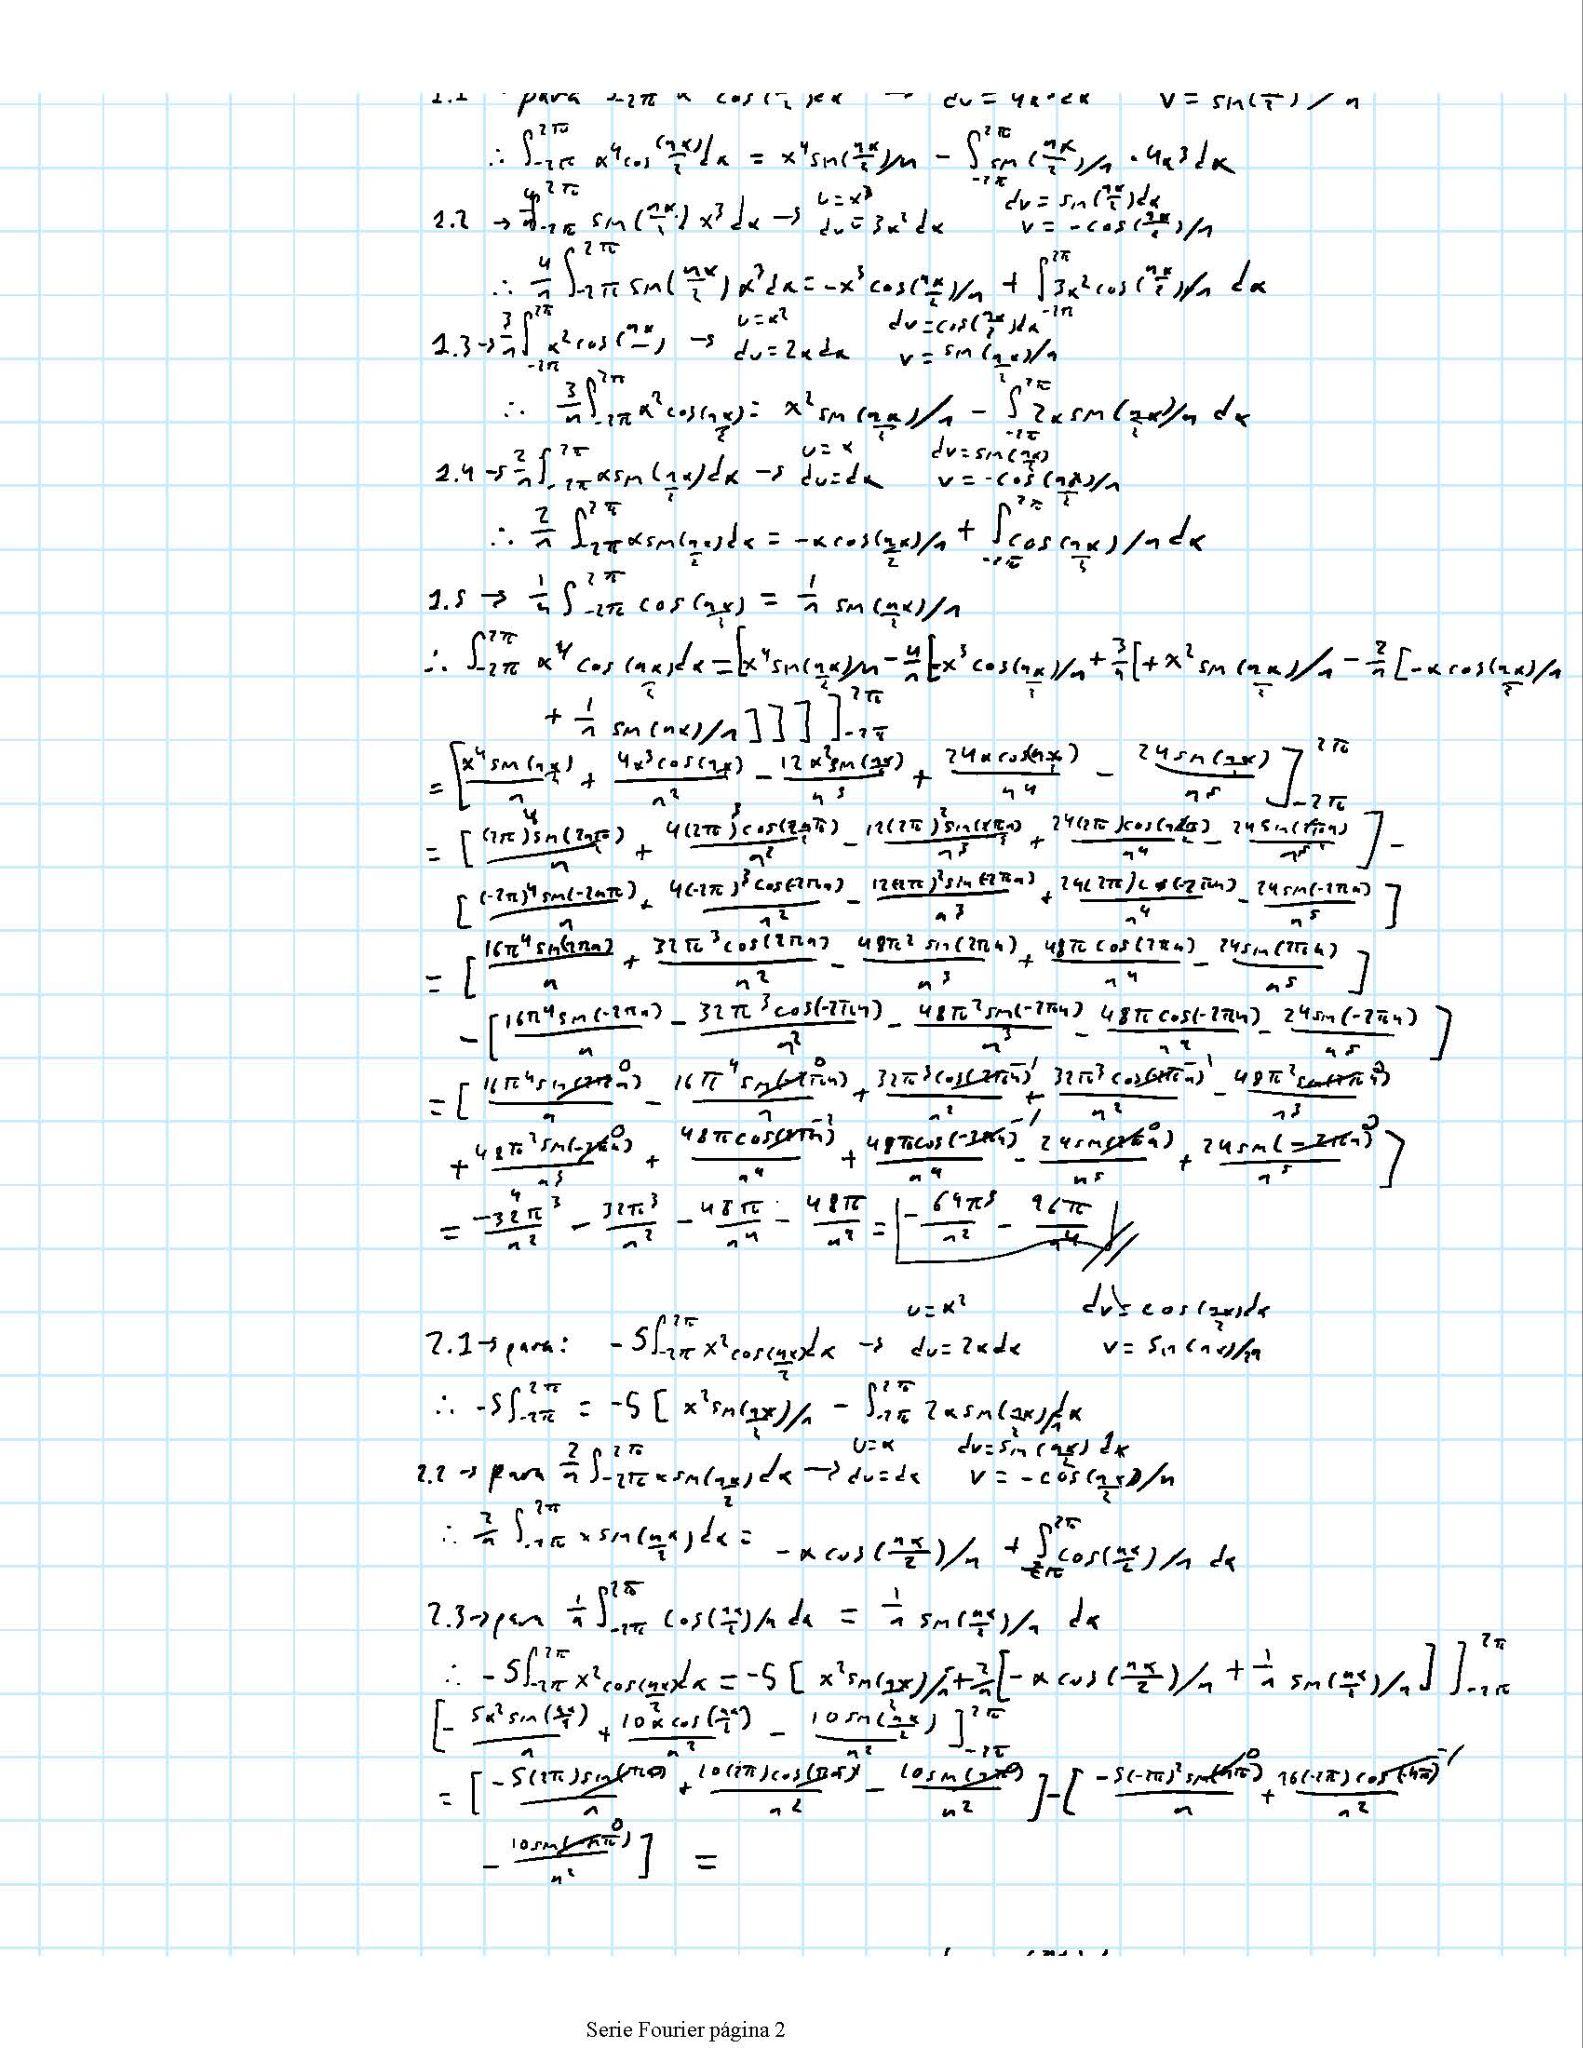 1.1 → para ∫-2π x cos( /2)dx → du = 4x³dx v = sin( /2) / n
∴ ∫-2π^2π x⁴cos(nx/2)dx = x⁴sin(nx/2)/n - ∫-2π^2π sin(nx/2)/n · 4x³dx
u=x³ dv=sin(nx/2)dx
1.2 → 4/n ∫-2π^2π sin(nx/2) x³dx → du=3x²dx v=-cos(nx/2)/n
∴ 4/n ∫-2π^2π sin(nx/2) x³dx = -x³cos(nx/2)/n + ∫-2π^2π 3x²cos(nx/2)/n dx
u=x² dv=cos(nx/2)dx
1.3 → 3/n ∫-2π^2π x²cos(nx/ ) → du=2xdx v=sin(nx/2)/n
∴ 3/n ∫-2π^2π x²cos(nx/2)= x²sin(nx/2)/n - ∫-2π^2π 2xsin(nx/2)/n dx
u=x dv=sin(nx/2)
1.4 → 2/n ∫-2π^2π xsin(nx/2)dx → du=dx v=-cos(nx/2)/n
∴ 2/n ∫-2π^2π xsin(nx/2)dx = -xcos(nx/2)/n + ∫-2π^2π cos(nx/2)/n dx
1.5 → 1/n ∫-2π^2π cos(nx/2) = 1/n sin(nx/2)/n
∴ ∫-2π^2π x⁴ cos(nx/2)dx = [x⁴sin(nx/2)/n - 4/n[-x³cos(nx/2)/n + 3/n[+x²sin(nx/2)/n - 2/n[-xcos(nx/2)/n
+ 1/n sin(nx)/n]]]]]-2π^2π
= [x⁴sin(nx/2)/n + 4x³cos(nx/2)/n² - 12x²sin(nx/2)/n³ + 24xcos(nx/2)/n⁴ - 24sin(nx/2)/n⁵]-2π^2π
= [(2π)⁴sin(2nπ/2)/n + 4(2π)³cos(2nπ/2)/n² - 12(2π)²sin(2πn)/n³ + 24(2π)cos(n2π)/n⁴ - 24sin(2πn)/n⁵] -
[(-2π)⁴sin(-2nπ)/n + 4(-2π)³cos(-2πn)/n² - 12(2π)²sin(-2πn)/n³ + 24(2π)cos(-2πn)/n⁴ - 24sin(-2πn)/n⁵]
= [16π⁴sin(2πn)/n + 32π³cos(2πn)/n² - 48π²sin(2πn)/n³ + 48πcos(2πn)/n⁴ - 24sin(2πn)/n⁵]
- [16π⁴sin(-2πn)/n - 32π³cos(-2πn)/n² - 48π²sin(-2πn)/n³ - 48πcos(-2πn)/n² - 24sin(-2πn)/n⁵]
= [16π⁴sin(2πn)⁰/n - 16π⁴sin(-2πn)⁰/n + 32π³cos(2πn)⁻¹/n² + 32π³cos(-2πn)⁻¹/n² - 48π²sin(2πn)⁰/n³
+ 48π²sin(-2πn)⁰/n³ + 48πcos(2πn)⁻¹/n⁴ + 48πcos(-2πn)⁻¹/n⁴ - 24sin(2πn)⁰/n⁵ + 24sin(-2πn)⁰/n⁵]
= -32π³/n² - 32π³/n² - 48π/n⁴ - 48π/n² = -64π³/n² - 96π/n⁴
u=x² dv=cos(nx/2)dx
2.1 → para: -5∫-2π^2π x²cos(nx/2)dx → du=2xdx v=sin(nx)/n
∴ -5∫-2π^2π = -5[x²sin(nx/2)/n - ∫-2π^2π 2xsin(nx/2)/n dx
u=x dv=sin(nx/2)dx
2.2 → para 2/n ∫-2π^2π xsin(nx/2)dx → du=dx v=-cos(nx/2)/n
∴ 2/n ∫-2π^2π xsin(nx/2)dx = -xcos(nx/2)/n + ∫-2π^2π cos(nx/2)/n dx
2.3 → para 1/n ∫-2π^2π cos(nx/2)/n dx = 1/n sin(nx/2)/n dx
∴ -5∫-2π^2π x²cos(nx/2)dx = -5[x²sin(nx/2)/n + 2/n[-xcos(nx/2)/n + 1/n sin(nx/2)/n]]-2π^2π
[-5x²sin(nx/2)/n + 10xcos(nx/2)/n² - 10sin(nx/2)/n²]-2π^2π
= [-5(2π)sin(πn)/n + 10(2π)cos(πn)/n² - 10sin(nπ)⁰/n²] - [-5(-2π)²sin(-nπ)⁰/n + 10(-2π)cos(-nπ)⁻¹/n²
- 10sin(-nπ)⁰/n²] =
Serie Fourier página 2